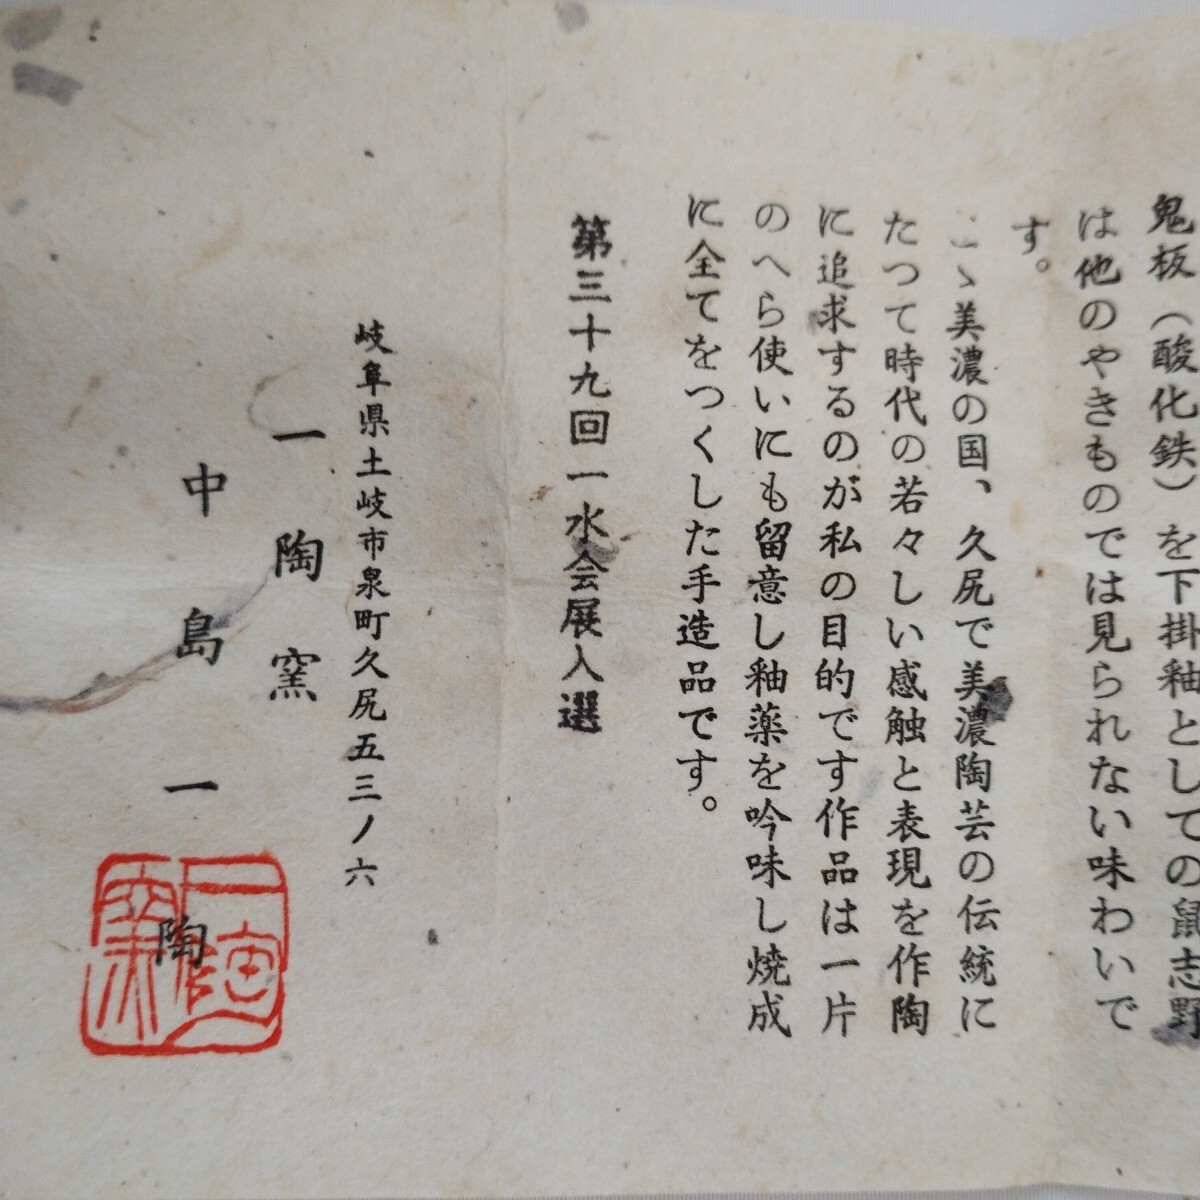 鬼板（酸化鉄）を下掛釉としての鼠志野
は他のやきものでは見られない味わいで
す。
こゝ美濃の国、久尻で美濃陶芸の伝統に
たつて時代の若々しい感触と表現を作陶
に追求するのが私の目的です作品は一片
のへら使いにも留意し釉薬を吟味し焼成
に全てをつくした手造品です。
第三十九回一水会展入選
岐阜県土岐市泉町久尻五三ノ六
一陶窯
中島一陶
一陶窯